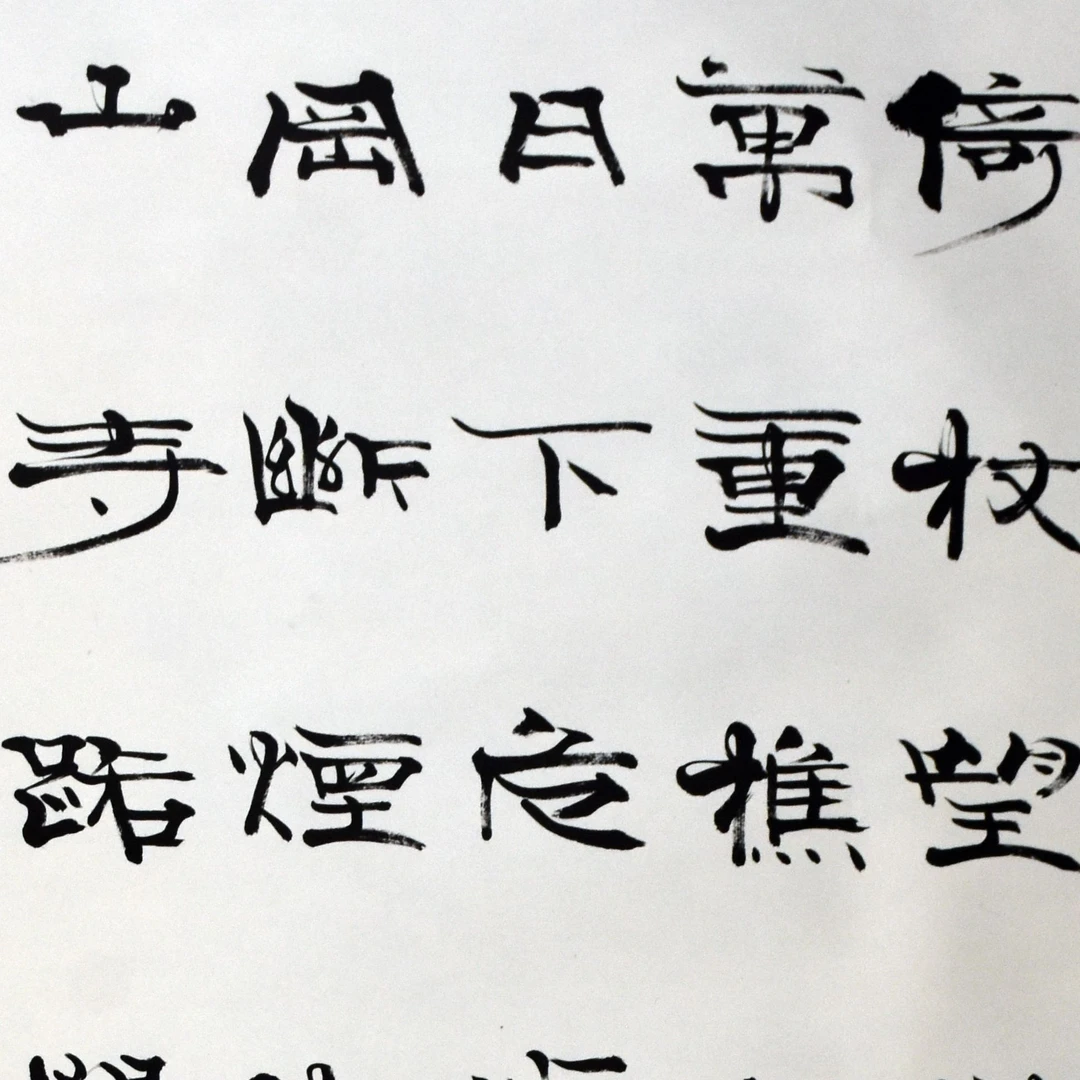 倚杖望
萬重樵
日下危
岡斷煙
山寺路